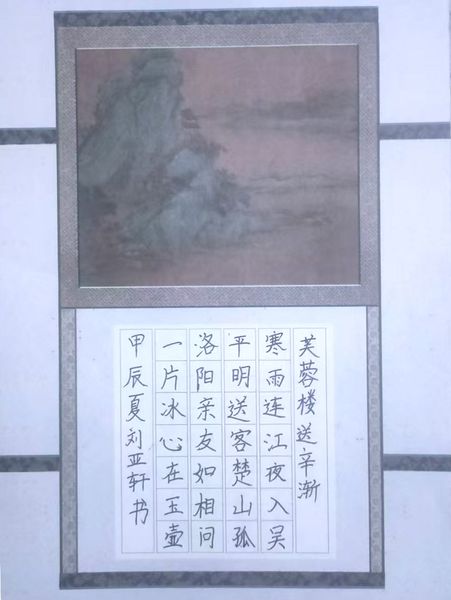 芙蓉楼送辛渐
寒雨连江夜入吴
平明送客楚山孤
洛阳亲友如相问
一片冰心在玉壶
甲辰夏刘亚轩书